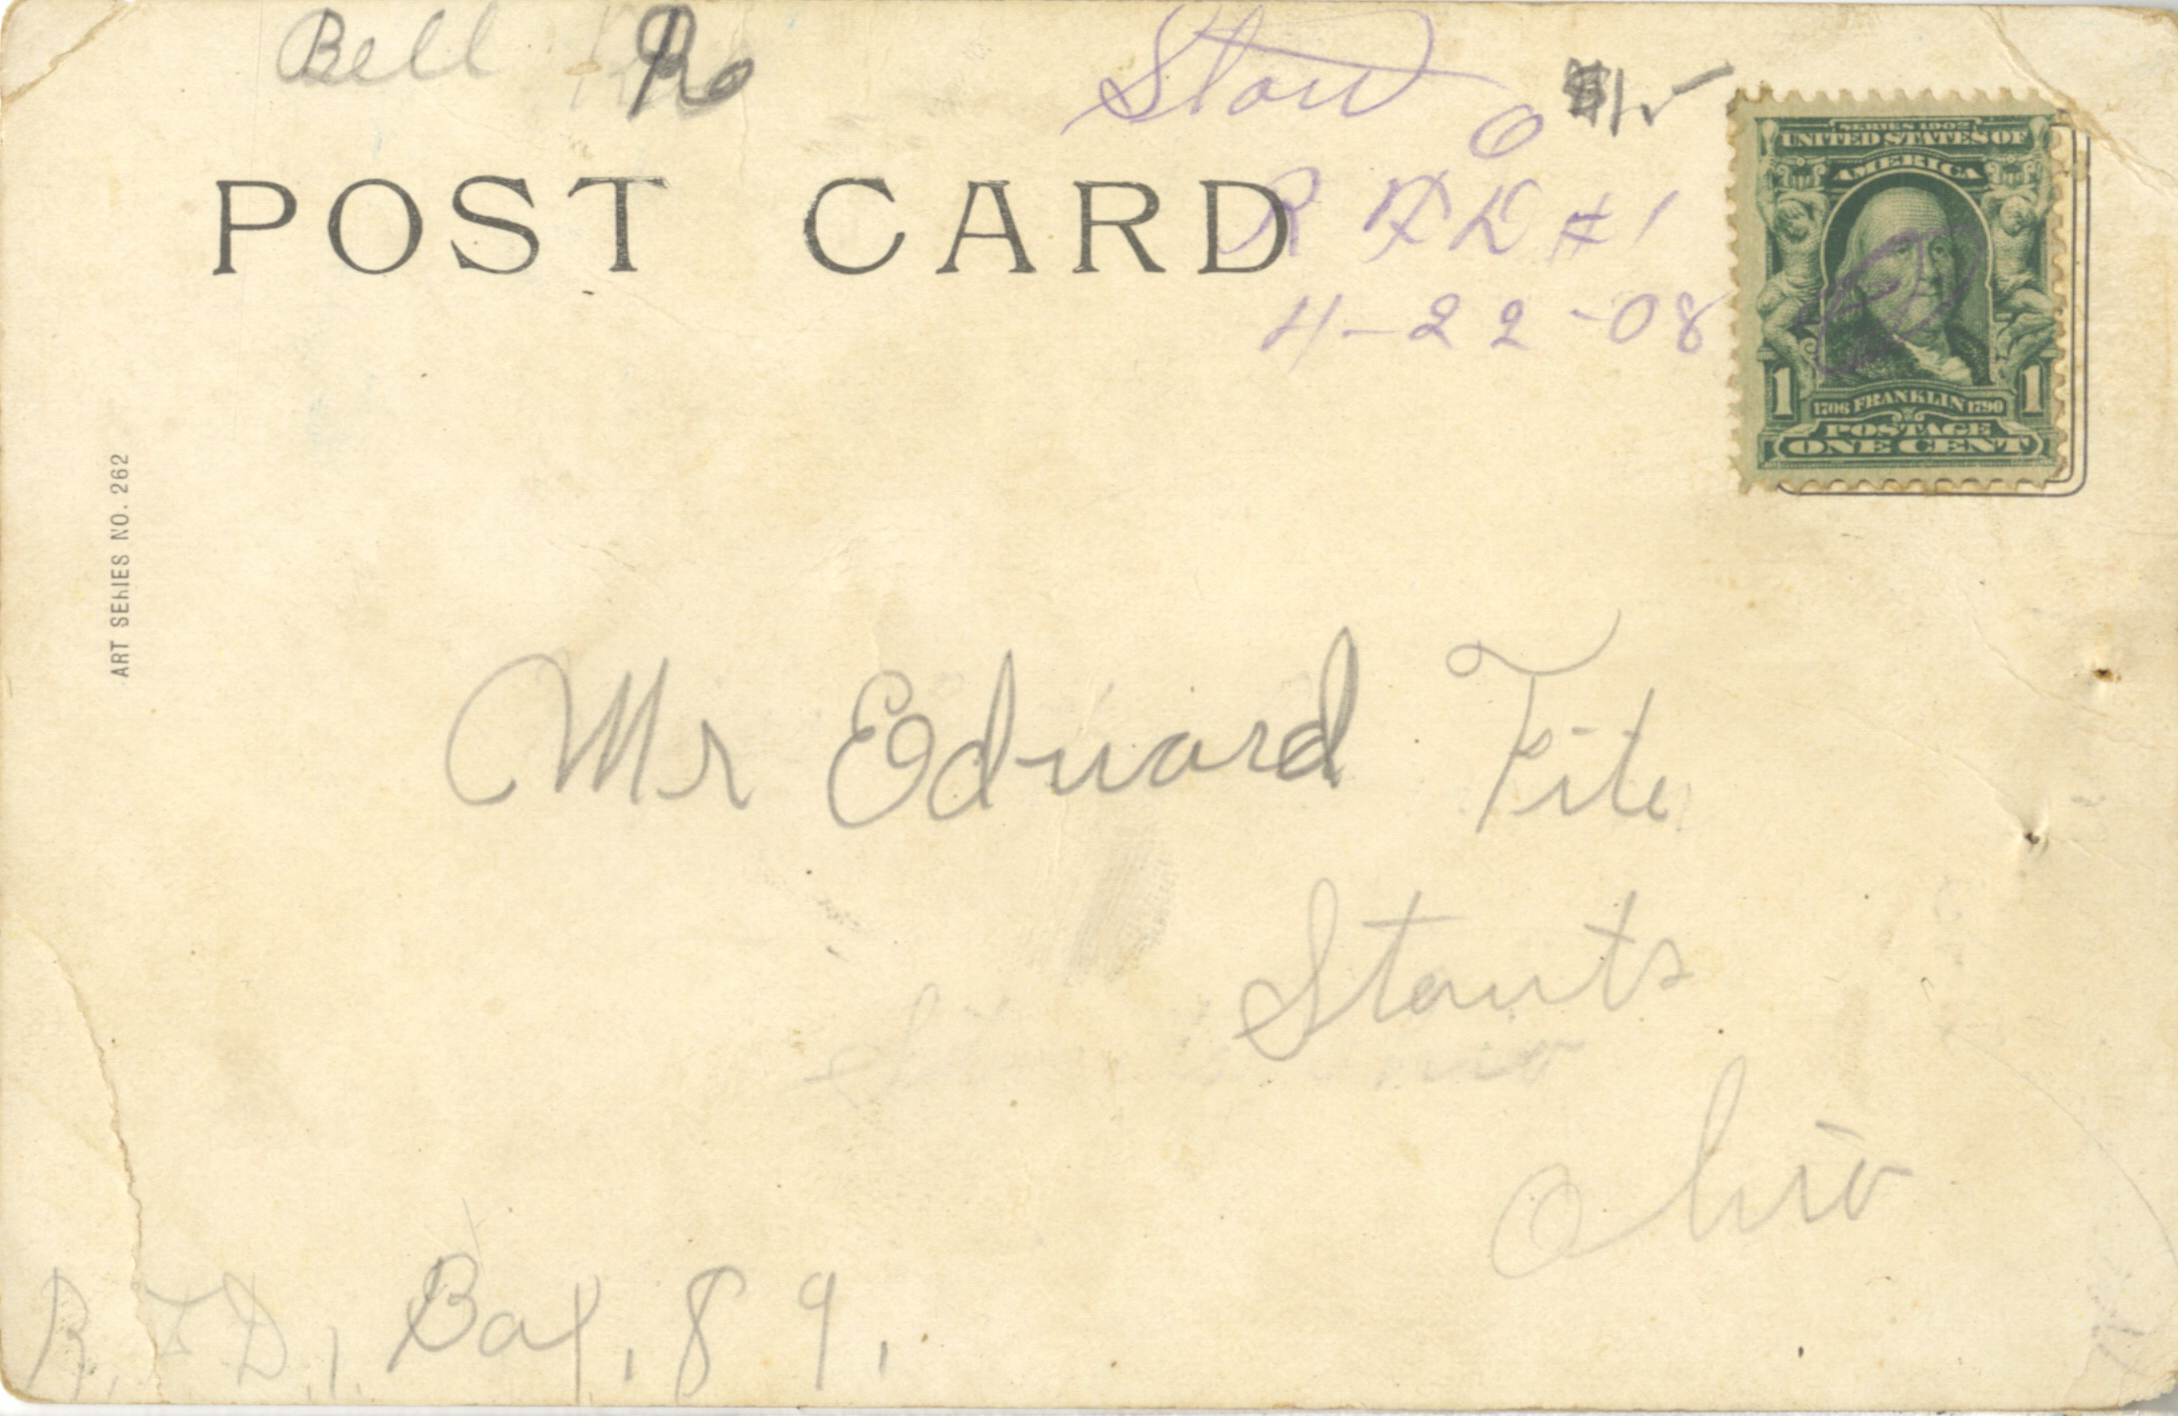 Bell
Stout
O
POST CARD
R F D #1
4-22-08
SERIES 1902
UNITED STATES OF
AMERICA
1 1706 FRANKLIN 1790 1
POSTAGE
ONE CENT
ART SERIES NO. 262
Mr Eduard Fite
Stouts
Ohio
R. F D, Box, 89.